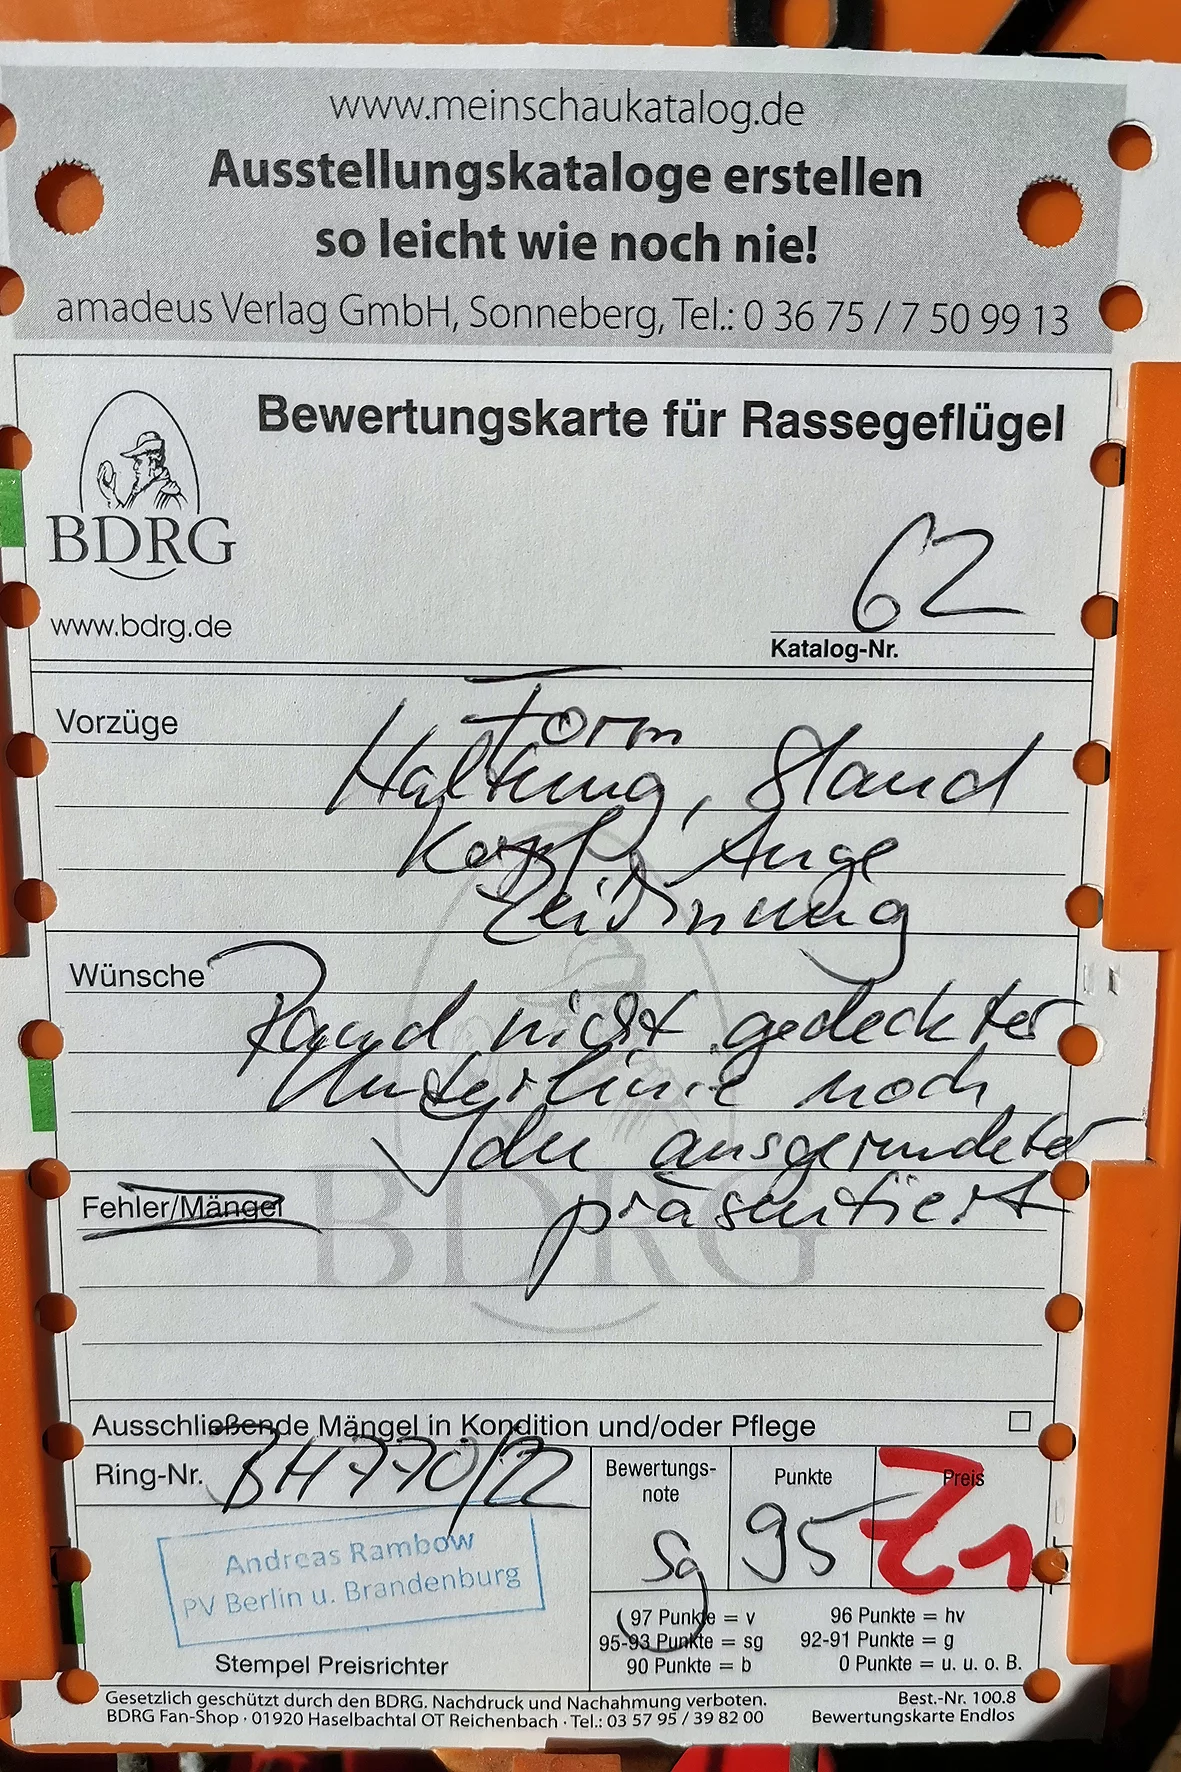 www.meinschaukatalog.de
Ausstellungskataloge erstellen
so leicht wie noch nie!
amadeus Verlag GmbH, Sonneberg, Tel.: 0 36 75 / 7 50 99 13
Bewertungskarte für Rassegeflügel
BDRG
www.bdrg.de
62
Katalog-Nr.
Vorzüge
Form
Haltung, Stand
Kopf, Auge
Zeichnung
Wünsche
nicht gedeckter
Unterlinie noch
ausgerundeter
präsentiert
Fehler/Mängel
BDRG
Ausschließende Mängel in Kondition und/oder Pflege
Ring-Nr. BH770/22
Bewertungs-
note
sg
Punkte
95
Preis
Z1
Andreas Rambow
PV Berlin u. Brandenburg
Stempel Preisrichter
97 Punkte = v 96 Punkte = hv
95-93 Punkte = sg 92-91 Punkte = g
90 Punkte = b 0 Punkte = u. u. o. B.
Gesetzlich geschützt durch den BDRG. Nachdruck und Nachahmung verboten. Best.-Nr. 100.8
BDRG Fan-Shop · 01920 Haselbachtal OT Reichenbach · Tel.: 03 57 95 / 39 82 00 Bewertungskarte Endlos